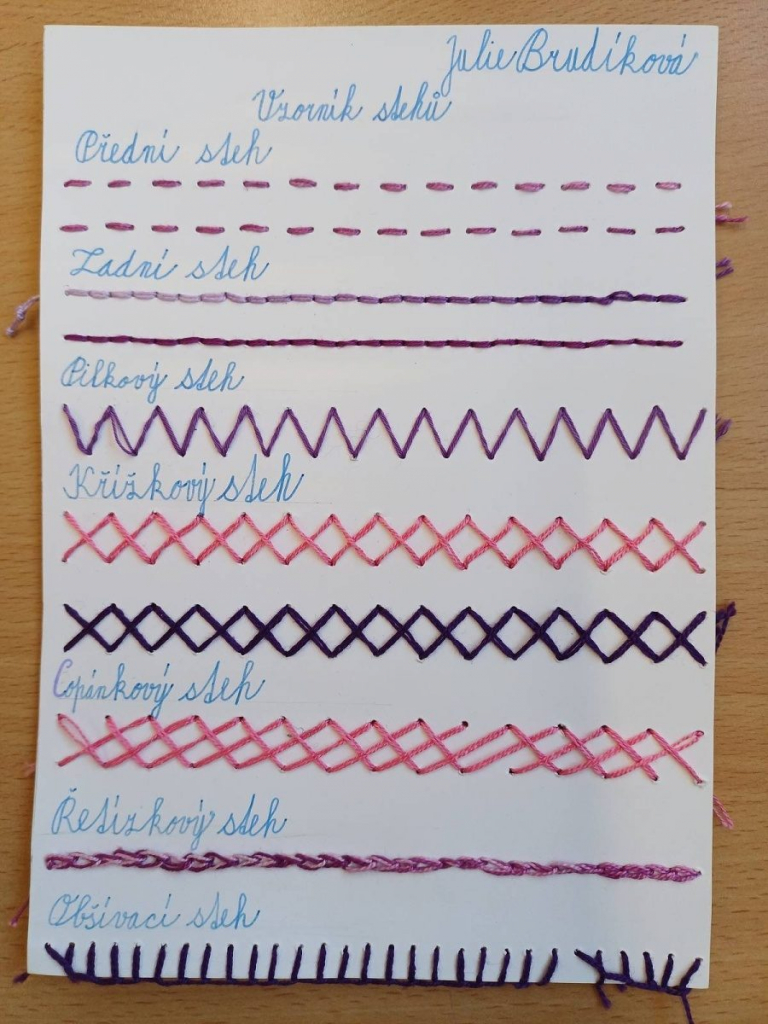 Julie Brudíková
Vzorník stehů
Přední steh
Zadní steh
Pilkový steh
Křížkový steh
Copánkový steh
Řetízkový steh
Obšívací steh